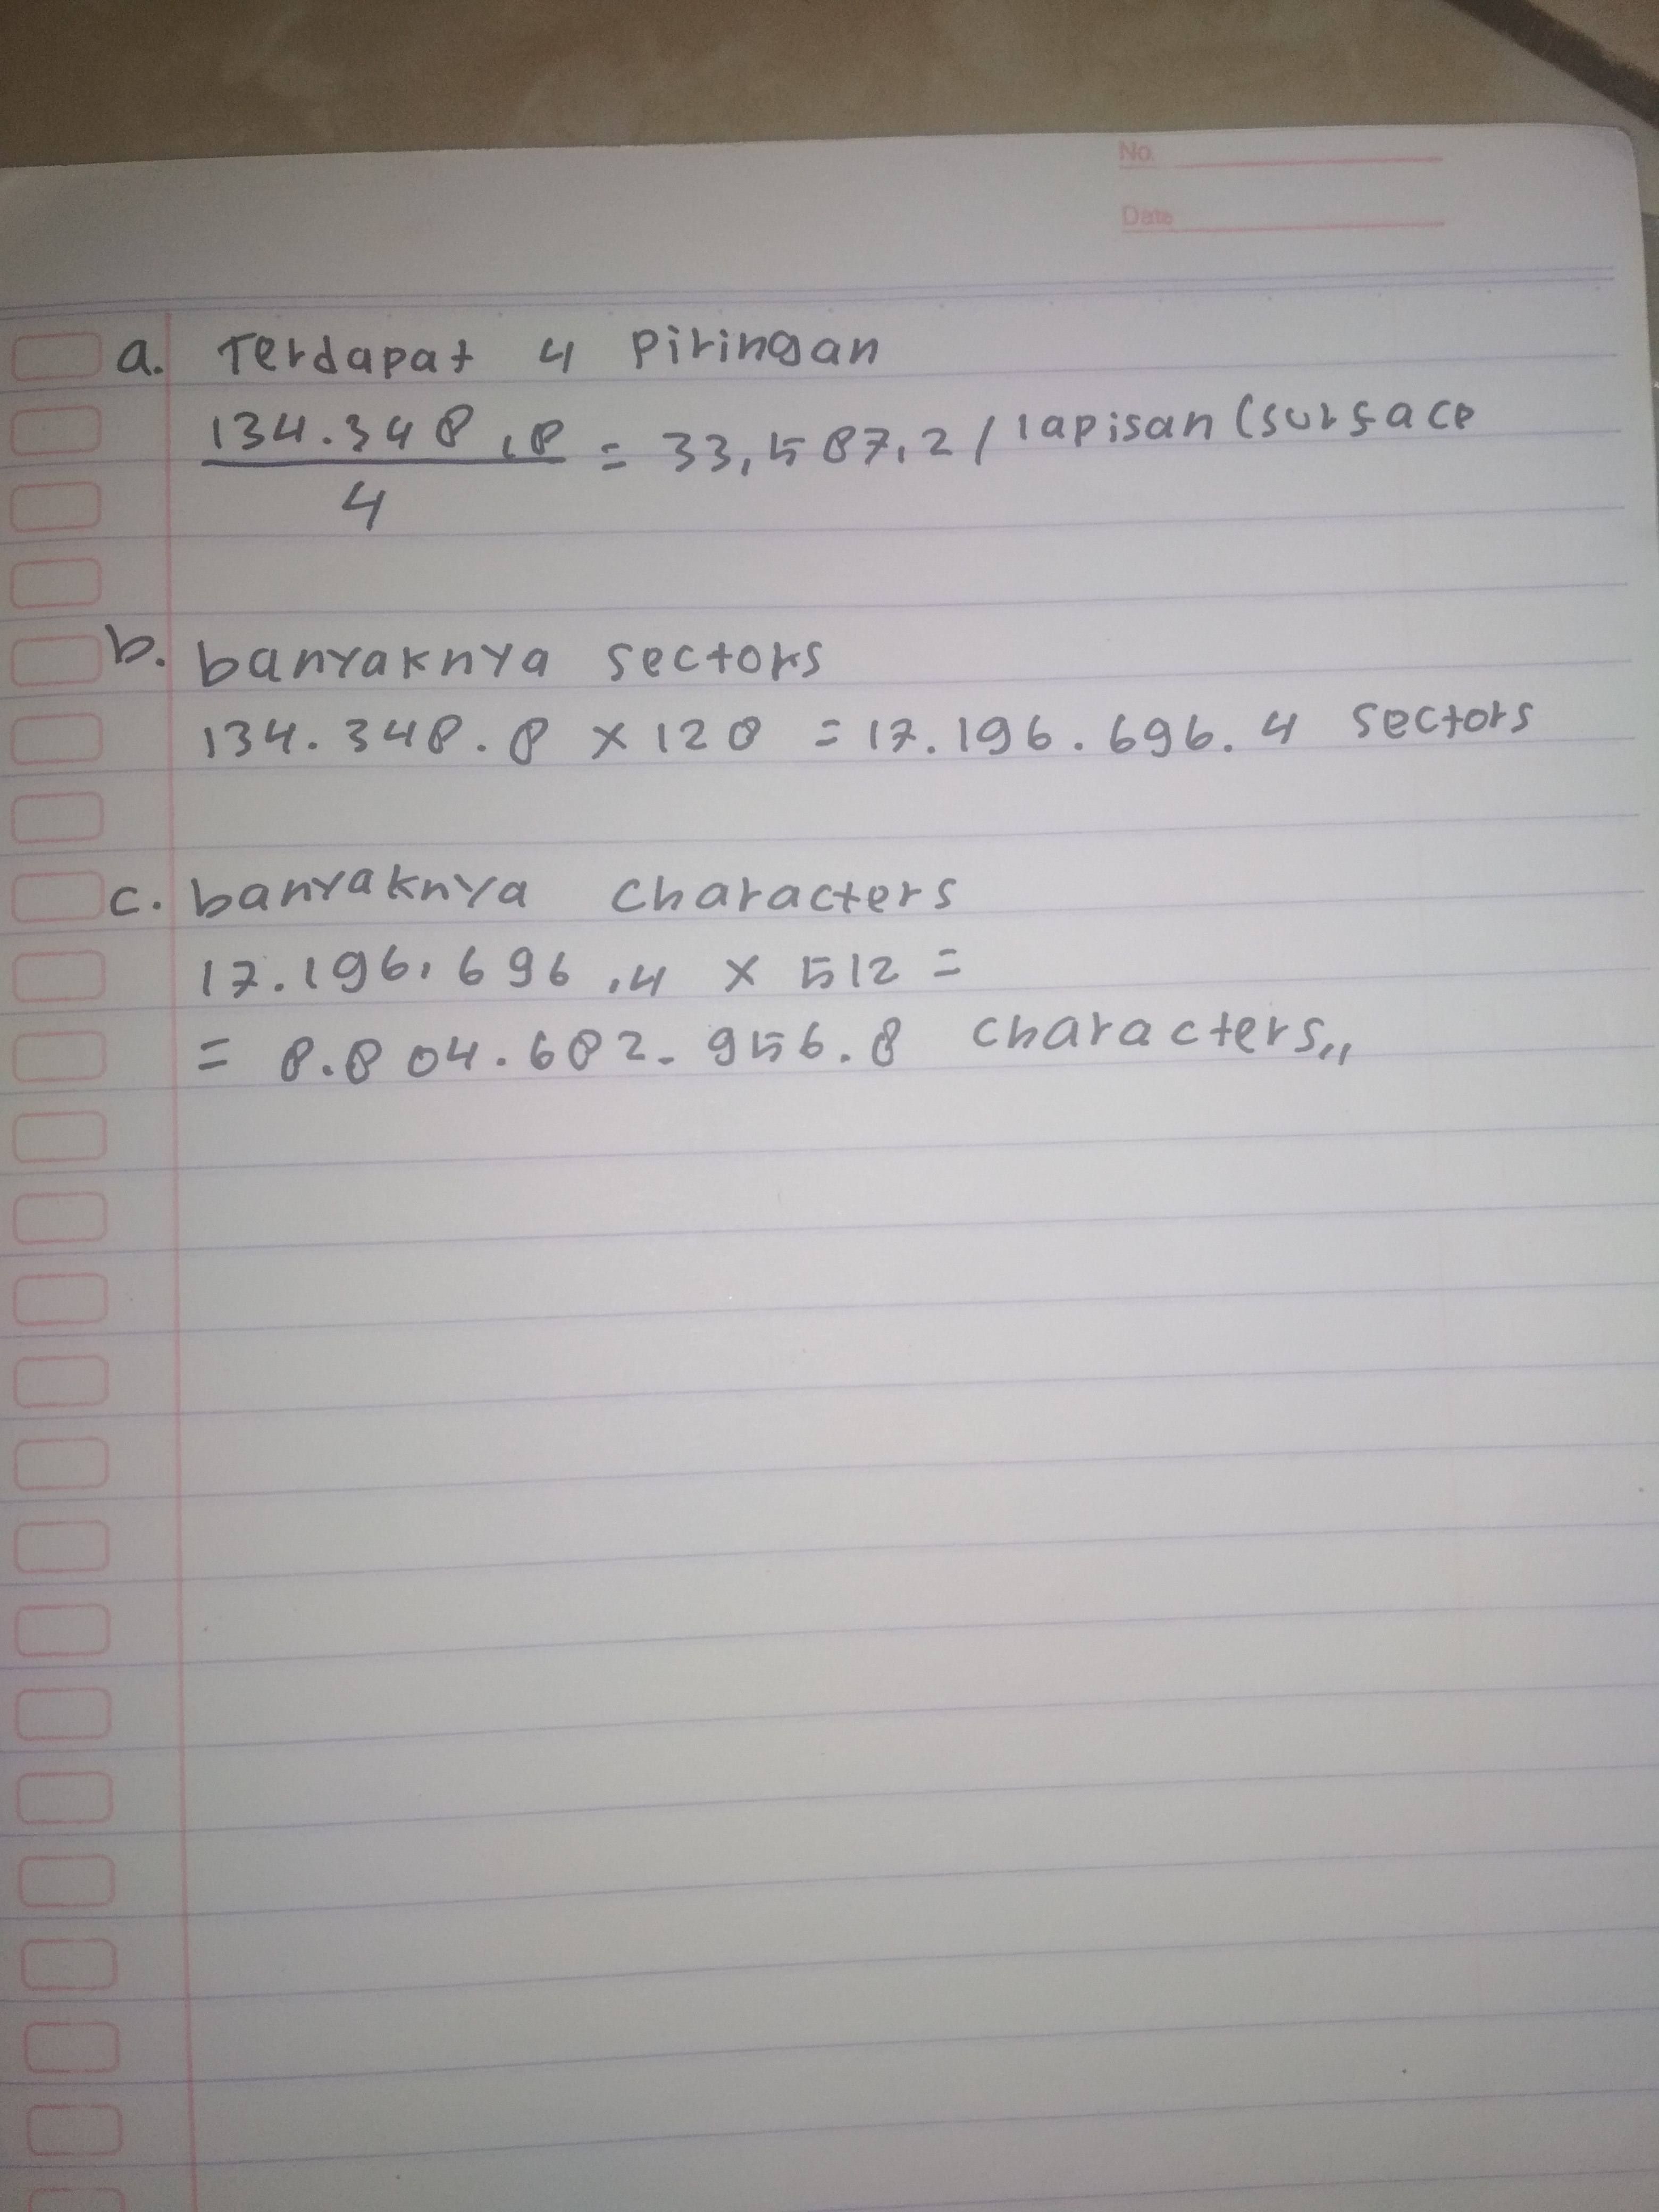 No.
Date
a. Terdapat 4 Piringan
134.348,8 / 4 = 33,587,2 / lapisan (surface
b. banyaknya sectors
134.348.8 x 128 = 17.196.696.4 sectors
c. banyaknya characters
17.196,696,4 x 512 =
= 8.804.682.956.8 characters,,